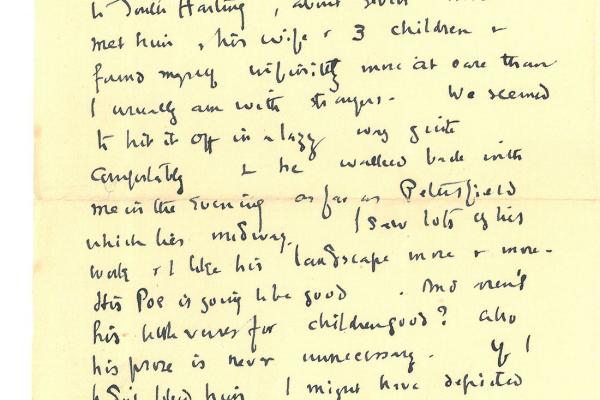 to South Harting, about seven
met him, his wife & 3 children &
found myself infinitely more at ease than
I usually am with strangers. We seemed
to hit it off in a lazy way quite
comfortably & he walked back with
me in the evening as far as Petersfield
which lies midway. I saw lots of his
work & I like his landscape more & more.
His Poe is going to be good. And aren't
his verses for children good? Also
his prose is never unnecessary. If I
liked him I might have depicted